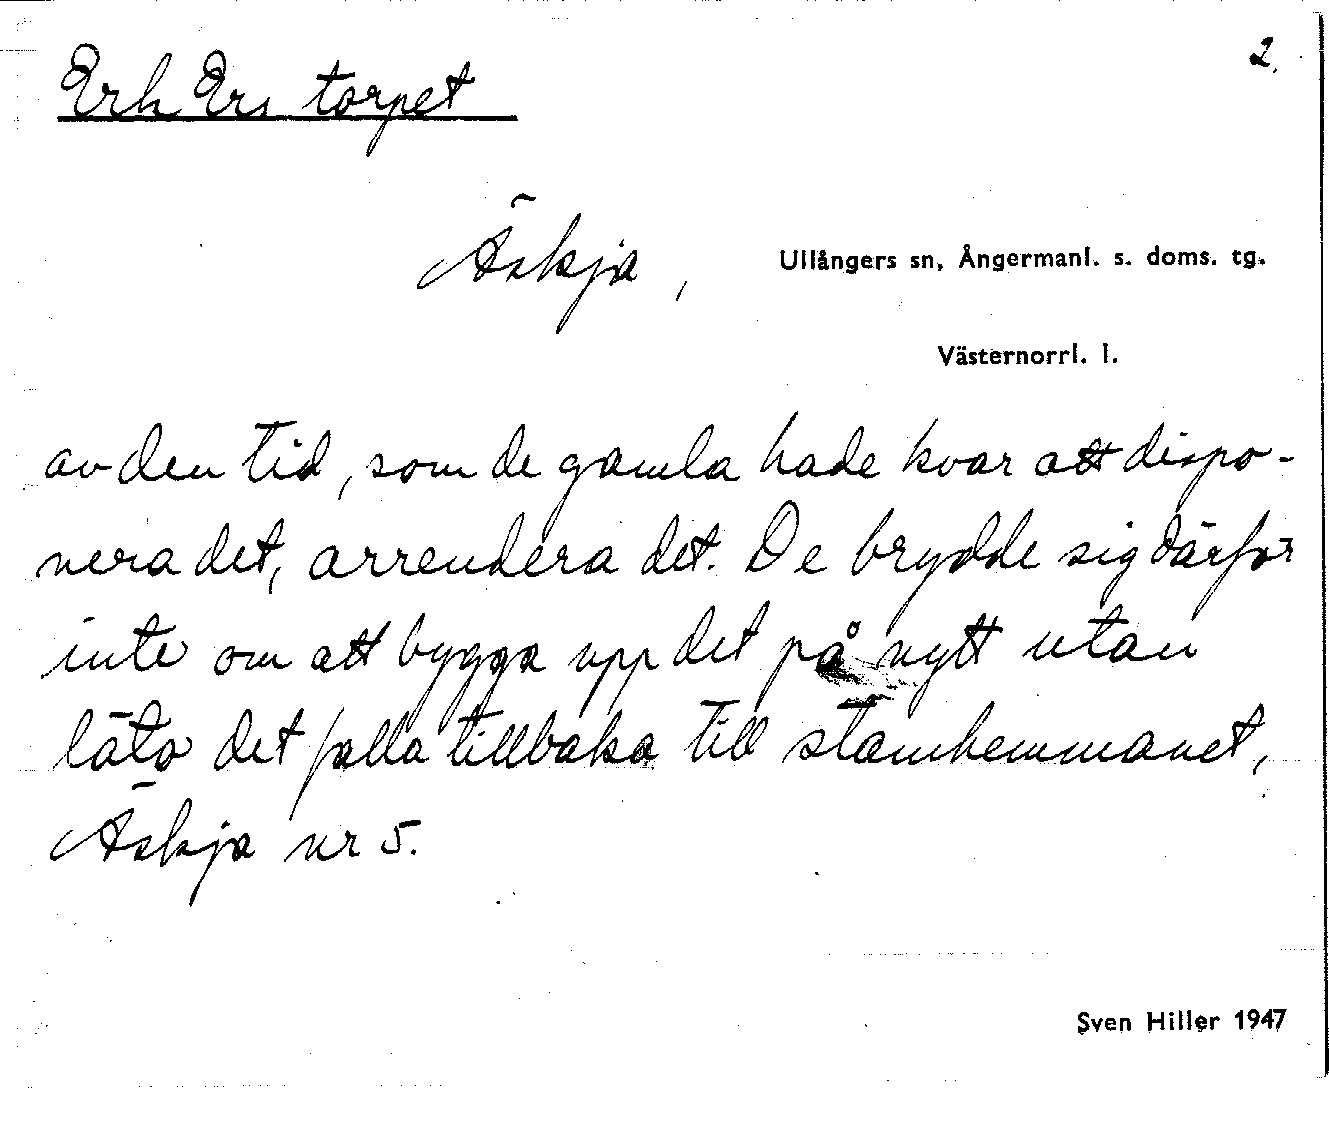 2.
Erk Ers torpet
Äskja, Ullångers sn, Ångermanl. s. doms. tg.
Västernorrl. l.
av den tid, som de gamla hade kvar att dispo-
nera det, arrendera det. De brydde sig därför
inte om att bygga upp det på nytt utan
läto det falla tillbaka till stamhemmanet,
Äskja nr 5.
Sven Hiller 1947